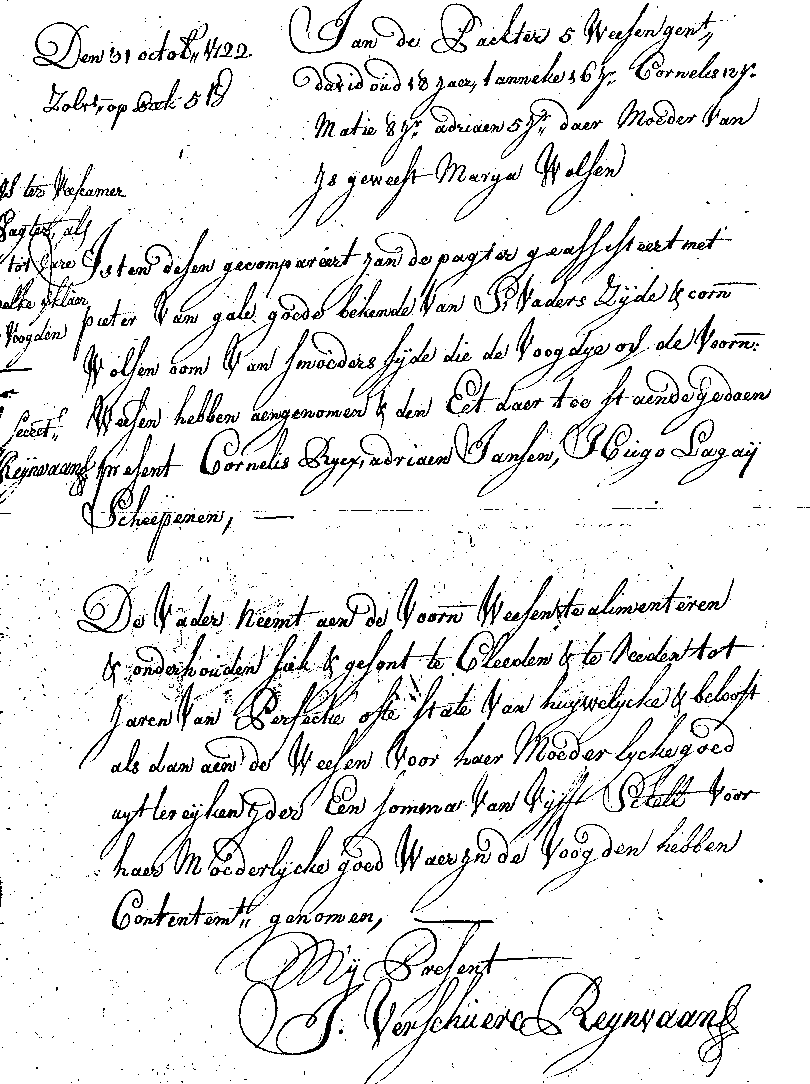 Den 31 octob,, 1722
op 5 lb
Jan de Packter 5 Weesen gent,,
david oud 18 jaer, tanneke 16 jr. Cornelis 12 jr.
Matie 8 jr. adriaen 5 jr,, daer Moeder Van
Js geweest Marya Wolsen
ter Weescamer
Pagter, als
tot Jare
Voogden
Secret,,
Reijnvaan
Js ten desen gecompareert Jan de pagter geassisteert met
pieter Van gale goede bekende Van S. Vaders Zyde & corn
Wolsen oom Van smoeders syde die de Voogdye over de Voorn:
Weesen hebben aengenomen & den Eet daer toe staende gedaen
present Cornelis Ryex, adriaen Jansen, J Hugo Lagaij
Scheepenen, —
De Vader Neemt aen de Voorn Weesen te alimenteren
& onderhouden siek & gesont te Cleeden & te Reeden tot
Jaren Van Perfectie ofte state Van huywelycke & belooft
als dan aen de Weesen Voor haer Moederlycke goed
uyt te reyken yder Een somma Van Vyff Schell Voor
haer Moederlycke goed Waer yn de Voogden hebben
Contentemt,, genomen, —
My Present
J. Verschuere Reynvaan